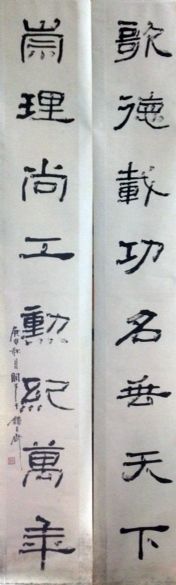 歌德載功名垂天下
崇理尚工勳紀萬年